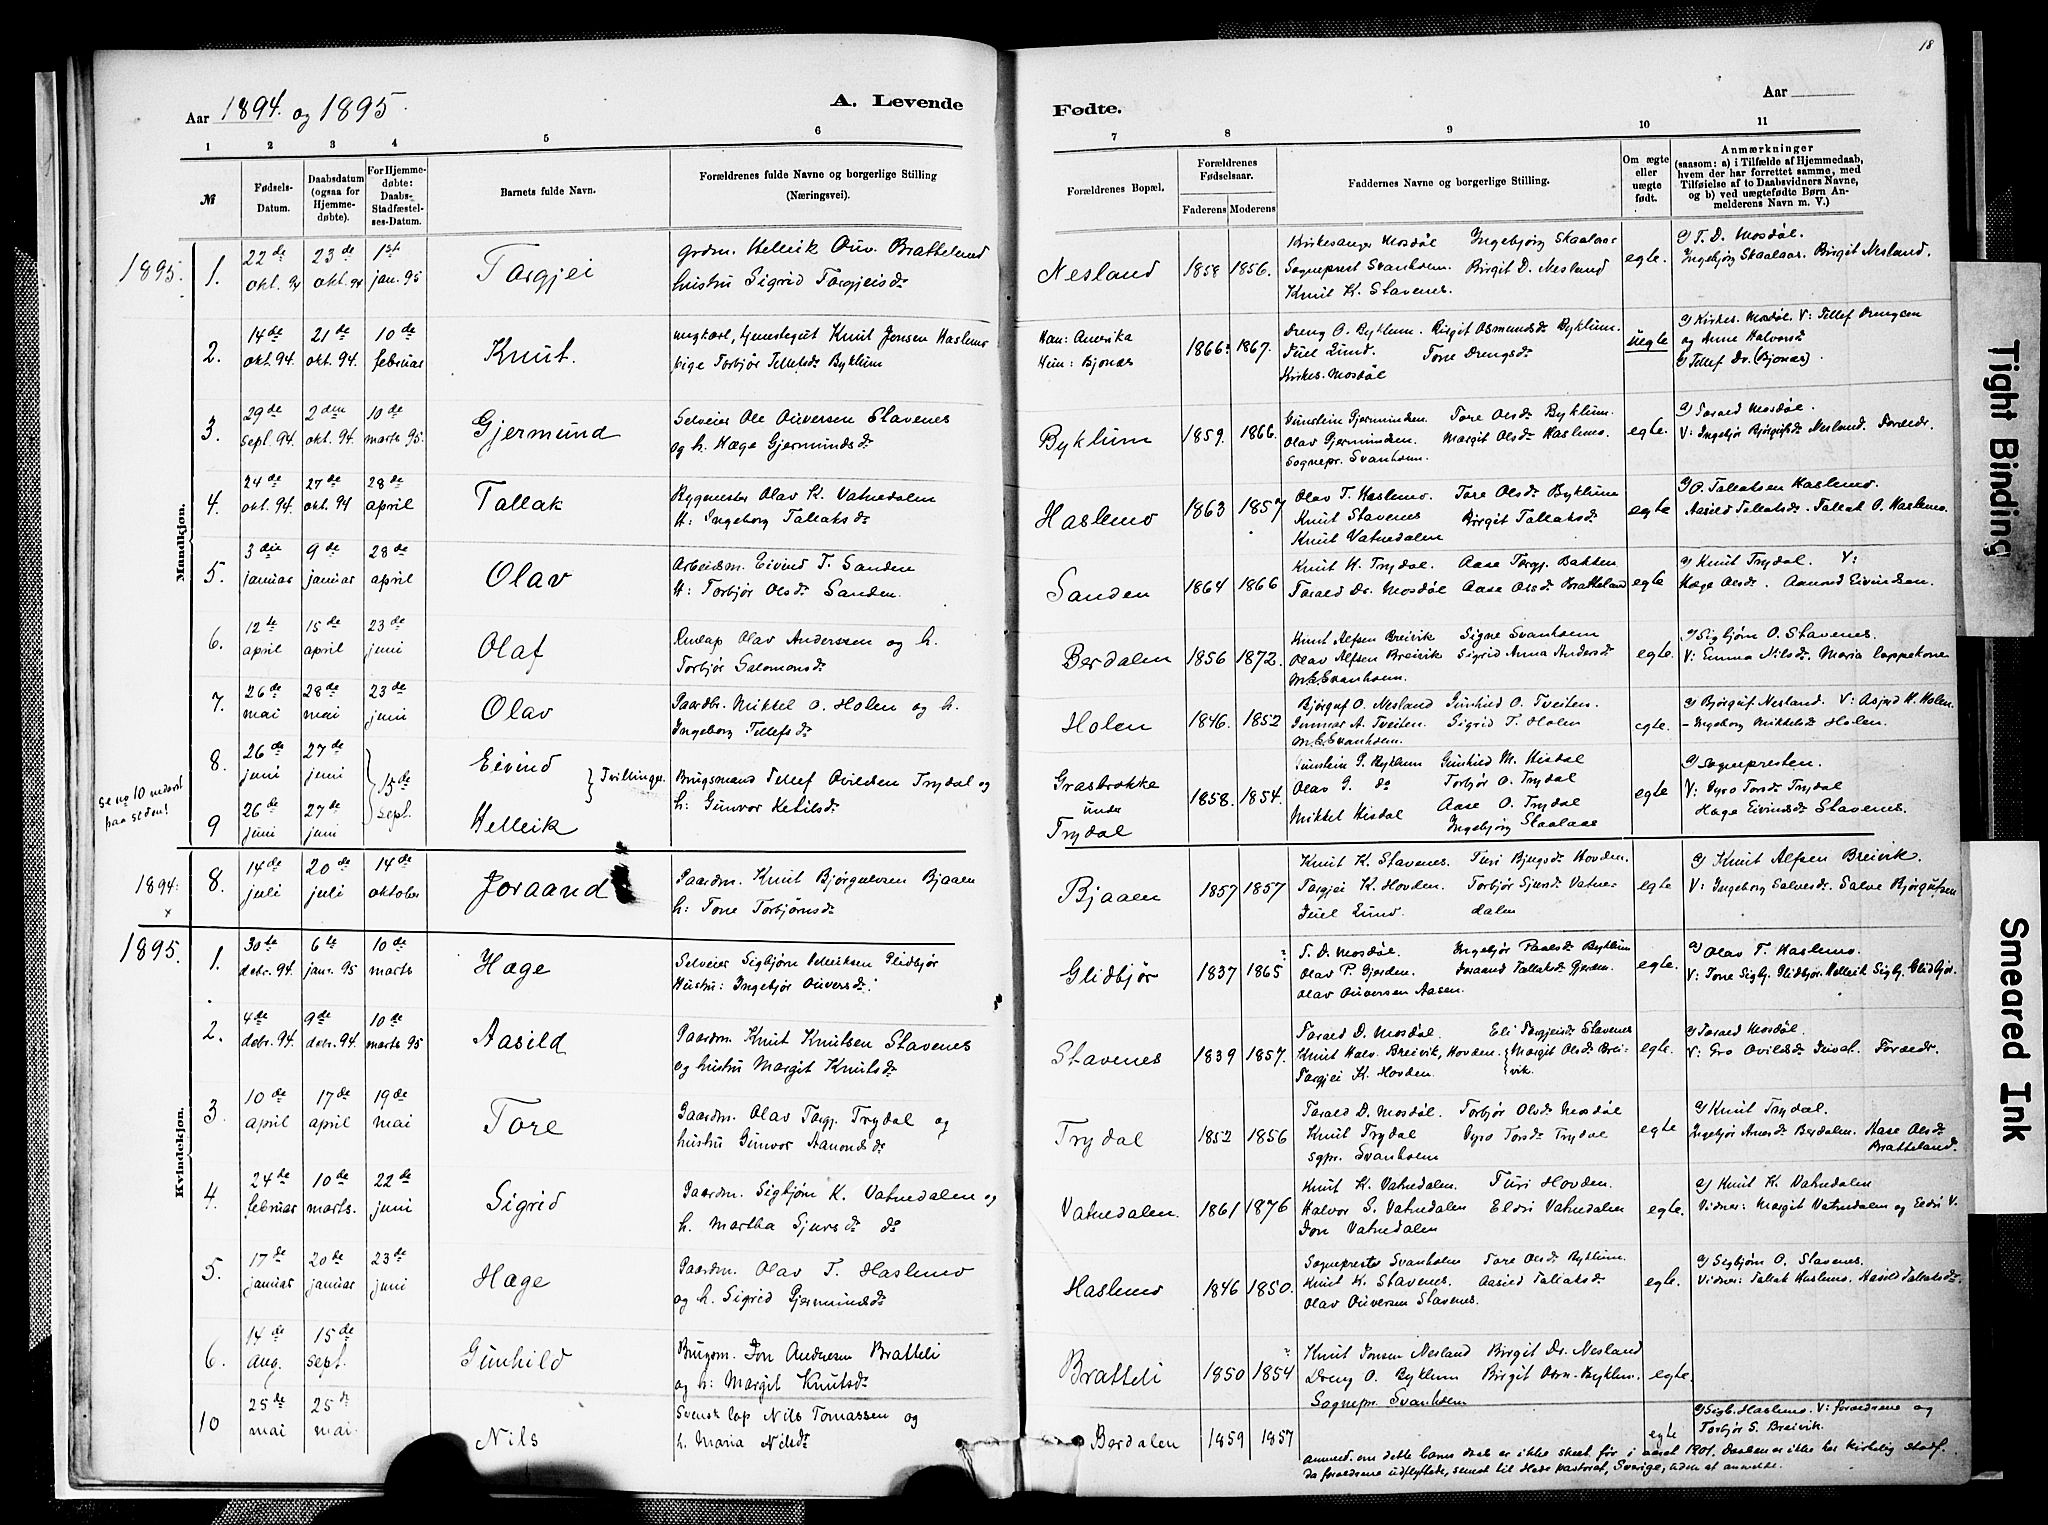 18
Aar 1894. og 1895.
A. Levende
Fødte.
Aar
1 2 3 4 5 6 7 8 9 10 11
№
Fødsels-Datum.
Daabsdatum (ogsaa for Hjemmedøbte).
For Hjemmedøbte: Daabs-Stadfæstelses-Datum.
Barnets fulde Navn.
Forældrenes fulde Navne og borgerlige Stilling (Næringsvei).
Forældrenes Bopæl.
Forældrenes Fødselsaar.
Faderens Moderens
Faddernes Navne og borgerlige Stilling.
Om ægte eller uægte født.
Anmærkninger
(saasom: a) i Tilfælde af Hjemmedaab, hvem der har forrettet samme, med Tilføielse af to Daabsvidners Navne, og b) ved uægtefødte Børn Anmelderens Navn m. V.)
Mandkjøn.
1895.
1. 22de okt. 94 23de okt. 94 1st jan. 95 Targjei
grdm. Helleik Ouv. Bratteland
hustru Sigrid Targjeisdr
Nesland 1858 1856.
Kirkesanger Mosdøl Ingebjørg Skaalaar
Sogneprest Svanholm. Birgit D. Nesland
Knut K. Stavenes.
egte.
a) T. D. Mosdøl.
Ingebjørg Skaalaar. Birgit Nesland.
2. 14de okt. 94 21de okt. 94. 10de februar Knut.
ungkarl, tjenestegut Knut Jonsen Haslemo
pige Torbjør Tellefsdr Byklum
Han: Amerika
Hun: Bjones
1866. 1867.
Dreng O. Byklum. Birgit Osmundsdr Byklum.
Juel Lund. Tone Drengsdr
Kirkes. Mosdøl
uegte
a) Kirkes. Mosdøl. V: Tellef Drengsen
og Anne Halvorsdr
b) Tellef Dr. (Bjones).
3. 29de sept. 94. 2den okt. 94. 10de marts 95. Gjermund
Selveier Ole Ouversen Stavenes
og h. Hæge Gjermundsdr
Byklum 1859. 1866.
Gunstein Gjermundsen Tore Olsdr Byklum.
Olav Gjermundsen. Margit Olsdr Haslemo.
Sognepr. Svanholm.
egte.
a) Tarald Mosdøl.
V: Ingebjør Bjørgufsdr Nesland. Foreldr.
4. 24de okt. 94. 27de okt. 94 28de april Tallak
Rygmester Olav K. Vatnedalen
H: Ingeborg Tallaksdr
Haslemo 1863 1857
Olav T. Haslemo. Tore Olsdr Byklum
Knut Stavenes Birgit Tallaksdr
Knut Vatnedalen
egte
a) O. Tallaksen Haslemo.
Aasild Tallaksdr. Tallak O. Haslemo.
5. 3die januar 9de januar 28de april Olav
Arbeidsm. Eivind T. Sanden
H: Torbjør Olsdr Sanden.
Sanden 1864 1866
Knut H. Trydal. Aase Torgj. Bakken
Tarald Dr. Mosdøl Aase Olsdr Bratteland
egte
a) Knut Trydal. V:
Hæge Olsdr. Aanond Eivindsen.
6. 12te april 15de april 23de juni Olaf
Olav Anderssen og h.
Torbjør Salomonsdr
Berdalen 1856 1872.
Knut Alfsen Breivik Signe Svanholm
Olav Alfsen Breivik Sigrid Anna Andersdr
M.E. Svanholm.
egte.
a) Sigbjørn O. Stavenes.
V: Emma Nilsdr. Maria lappekone
7. 26de mai 28de mai 23de juni Olav
Gaardbr. Mikkel O. Holen og h.
Ingeborg Tellefsdr
Holen 1846. 1852
Bjørguf O. Nesland Gunhild O. Tveiten.
Gunnar A. Tveiten. Sigrid T. Holen
M.E. Svanholm.
egte.
a) Bjørguf Nesland. V: Asjerd H. Holen.
- Ingeborg Mikkelsdr Holen.
se no 10 nederst
paa siden!
8. 26de juni 27de juni 15de sept. Eivind
9 26de juni 27de juni Helleik
} Tvillinger.
Brugsmand Tellef Ovildsen Trydal og
h: Gunvor Ketilsdr
Grasbrokke
under
Trydal
1858. 1854.
Gunstein G. Byklum Gunhild M. Hisdal
Olav G. do Torbjør O. Trydal
Mikkel Hisdal Aase O. Trydal
Ingebjørg Skaalaae
egte
a) Sognepresten.
V: Gyro Torsdr Trydal
Hæge Eivindsdr Stavenes.
1894.
8. 14de juli 20de juli 14de oktober Joraand
Gaardm. Knut Bjørgulvsen Bjaaen
h: Tone Torbjørnsdr
Bjaaen 1857 1857
Knut K. Stavenes. Turi Bjugsdr Hovden.
Targjei K. Hovden. Torbjør Sjursdr Vatne-
Juel Lund. dalen
egte
a) Knut Alfsen Breivik.
V: Ingeborg Salvesdr. Salve Bjørgufsen
Kvindekjøn.
1895.
1. 30te debr. 94. 6te janr. 95 10de marts Hæge
Selveier Sigbjørn Helleiksen Glidbjør
Hustru: Ingebjør Ouversdr.
Glidbjør 1837 1865
T. D. Mosdøl. Ingebjør Paalsdr Byklum
Olav P. Gjerden. Joraand Tallaksdr Gjerden.
Olav Ouversen Aasen.
egte.
a) Olav T. Haslemo.
V: Tone Sigbj. Glidbjør. Helleik Sigbj. Glidbjør.
2. 4de debr. 94. 9de debr. 94. 10de marts 95 Aasild
Gaardm. Knut Knutsen Stavenes
og hustru Margit Knutsdr
Stavenes 1839 1857.
Tarald D. Mosdøl. Eli Targjeisdr Stavenes
Knut Halv. Breivik, Hovden. Margit Olsdr Brei-
Targjei K. Hovden. vik.
egte.
a) Tarald Mosdøl.
V: Gro Ovildsdr. Foraeldr.
3. 10de april 17de april 19de mai Tore
Gaardm. Olav Targj. Trydal og
hustru Gunvor Aanondsdr
Trydal 1852 1856
Tarald D. Mosdøl. Torbjør Olsdr Mosdøl
Knut Trydal Gyro Torsdr Trydal
Sgpr. Svanholm
egte
a) Knut Trydal.
Ingebjør Arnesdr Berdalen. Aase Olsdr
Bratteland.
4. 24de februar 10de marts. 22de juni Sigrid
Gaardm. Sigbjørn K. Vatnedalen og
h. Martha Sjursdr do
Vatnedalen. 1861 1876
Knut K. Vatnedalen. Turi Hovden.
Halvor S. Vatnedalen Eldri Vatnedalen
Jon Vatnedalen
egte.
a) Knut K. Vatnedalen
Vidner: Margit Vatnedalen og Eldri V.
5. 17de januar 20de januar 23de juni Hæge
Gaardm. Olav T. Haslemo
og h. Sigrid Gjermundsdr
Haslemo 1846 1850.
Sogneprest Svanholm Tore Olsdr Byklum.
Knut K. Stavenes. Aasild Tallaksdr.
Olav Ouversen Stavenes.
egte.
a) Sigbjørn O. Stavenes.
Vidner: Tallak Haslemo. Aasild Tallaksdr.
6. 14de aug. 15de sept. Gunhild
Brugsm. Jon Andresen Bratteli
og h: Margit Knutsdr
Bratteli 1850 1854
Knut Jonsen Nesland Birgit Dr. Nesland
Dreng O. Byklum Birgit Osm. Byklum.
Sognepr. Svanholm
egte.
10 25de mai 25de mai. Nils
Svensk lap Nils Tomassen og
h. Maria Nilsdr
Berdalen 1859 1857
egte
a) Sigb. Haslemo. V: foraeldrene og
Torbjør S. Breivik.
Anmed. om dette barns daab er ikke skeet før i aaret 1901. Daaben er ikke bl. kirkelig stadf.
da foraeldrene udflyttede, senest til Hede pastorat, Sverige, uden at anmelde.
Tight Binding
Smeared Ink